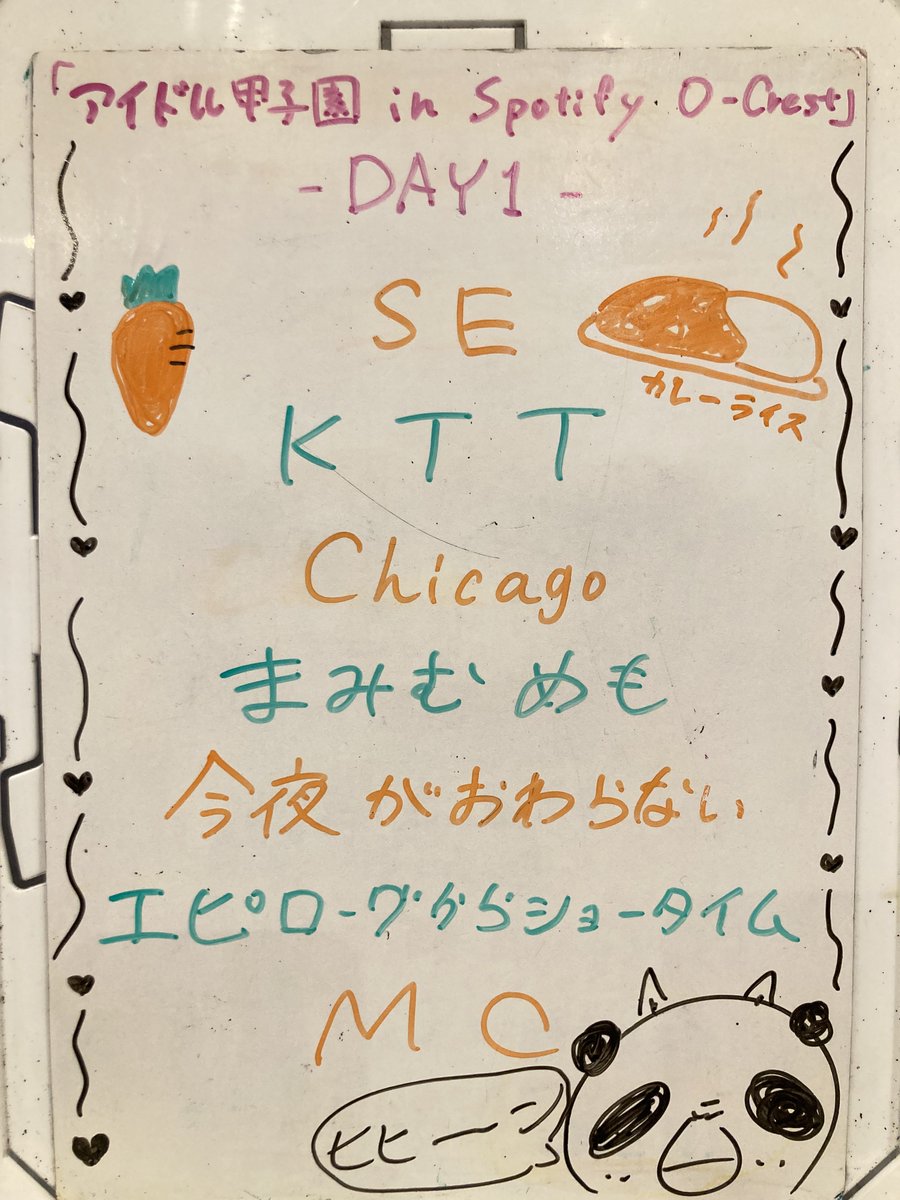 「アイドル甲子園 in Spotify O-Crest」
-DAY1-
SE
カレーライス
KTT
Chicago
まみむめも
今夜がおわらない
エピローグからショータイム
MC
ヒヒーン